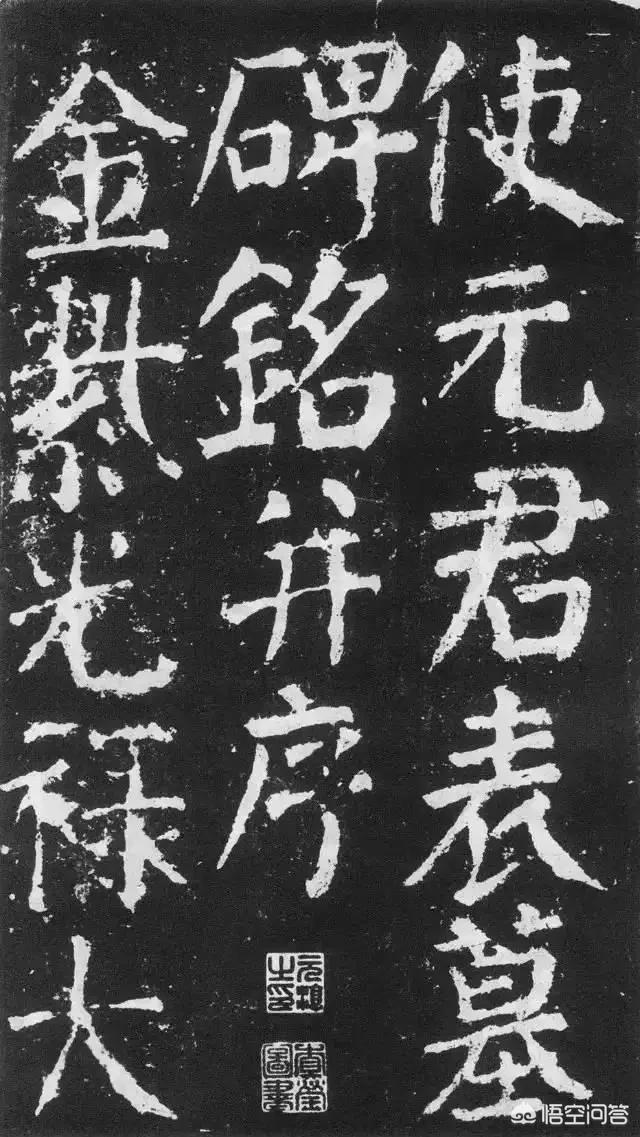 使元君表墓
碑銘并序
金紫光祿大
悟空问答